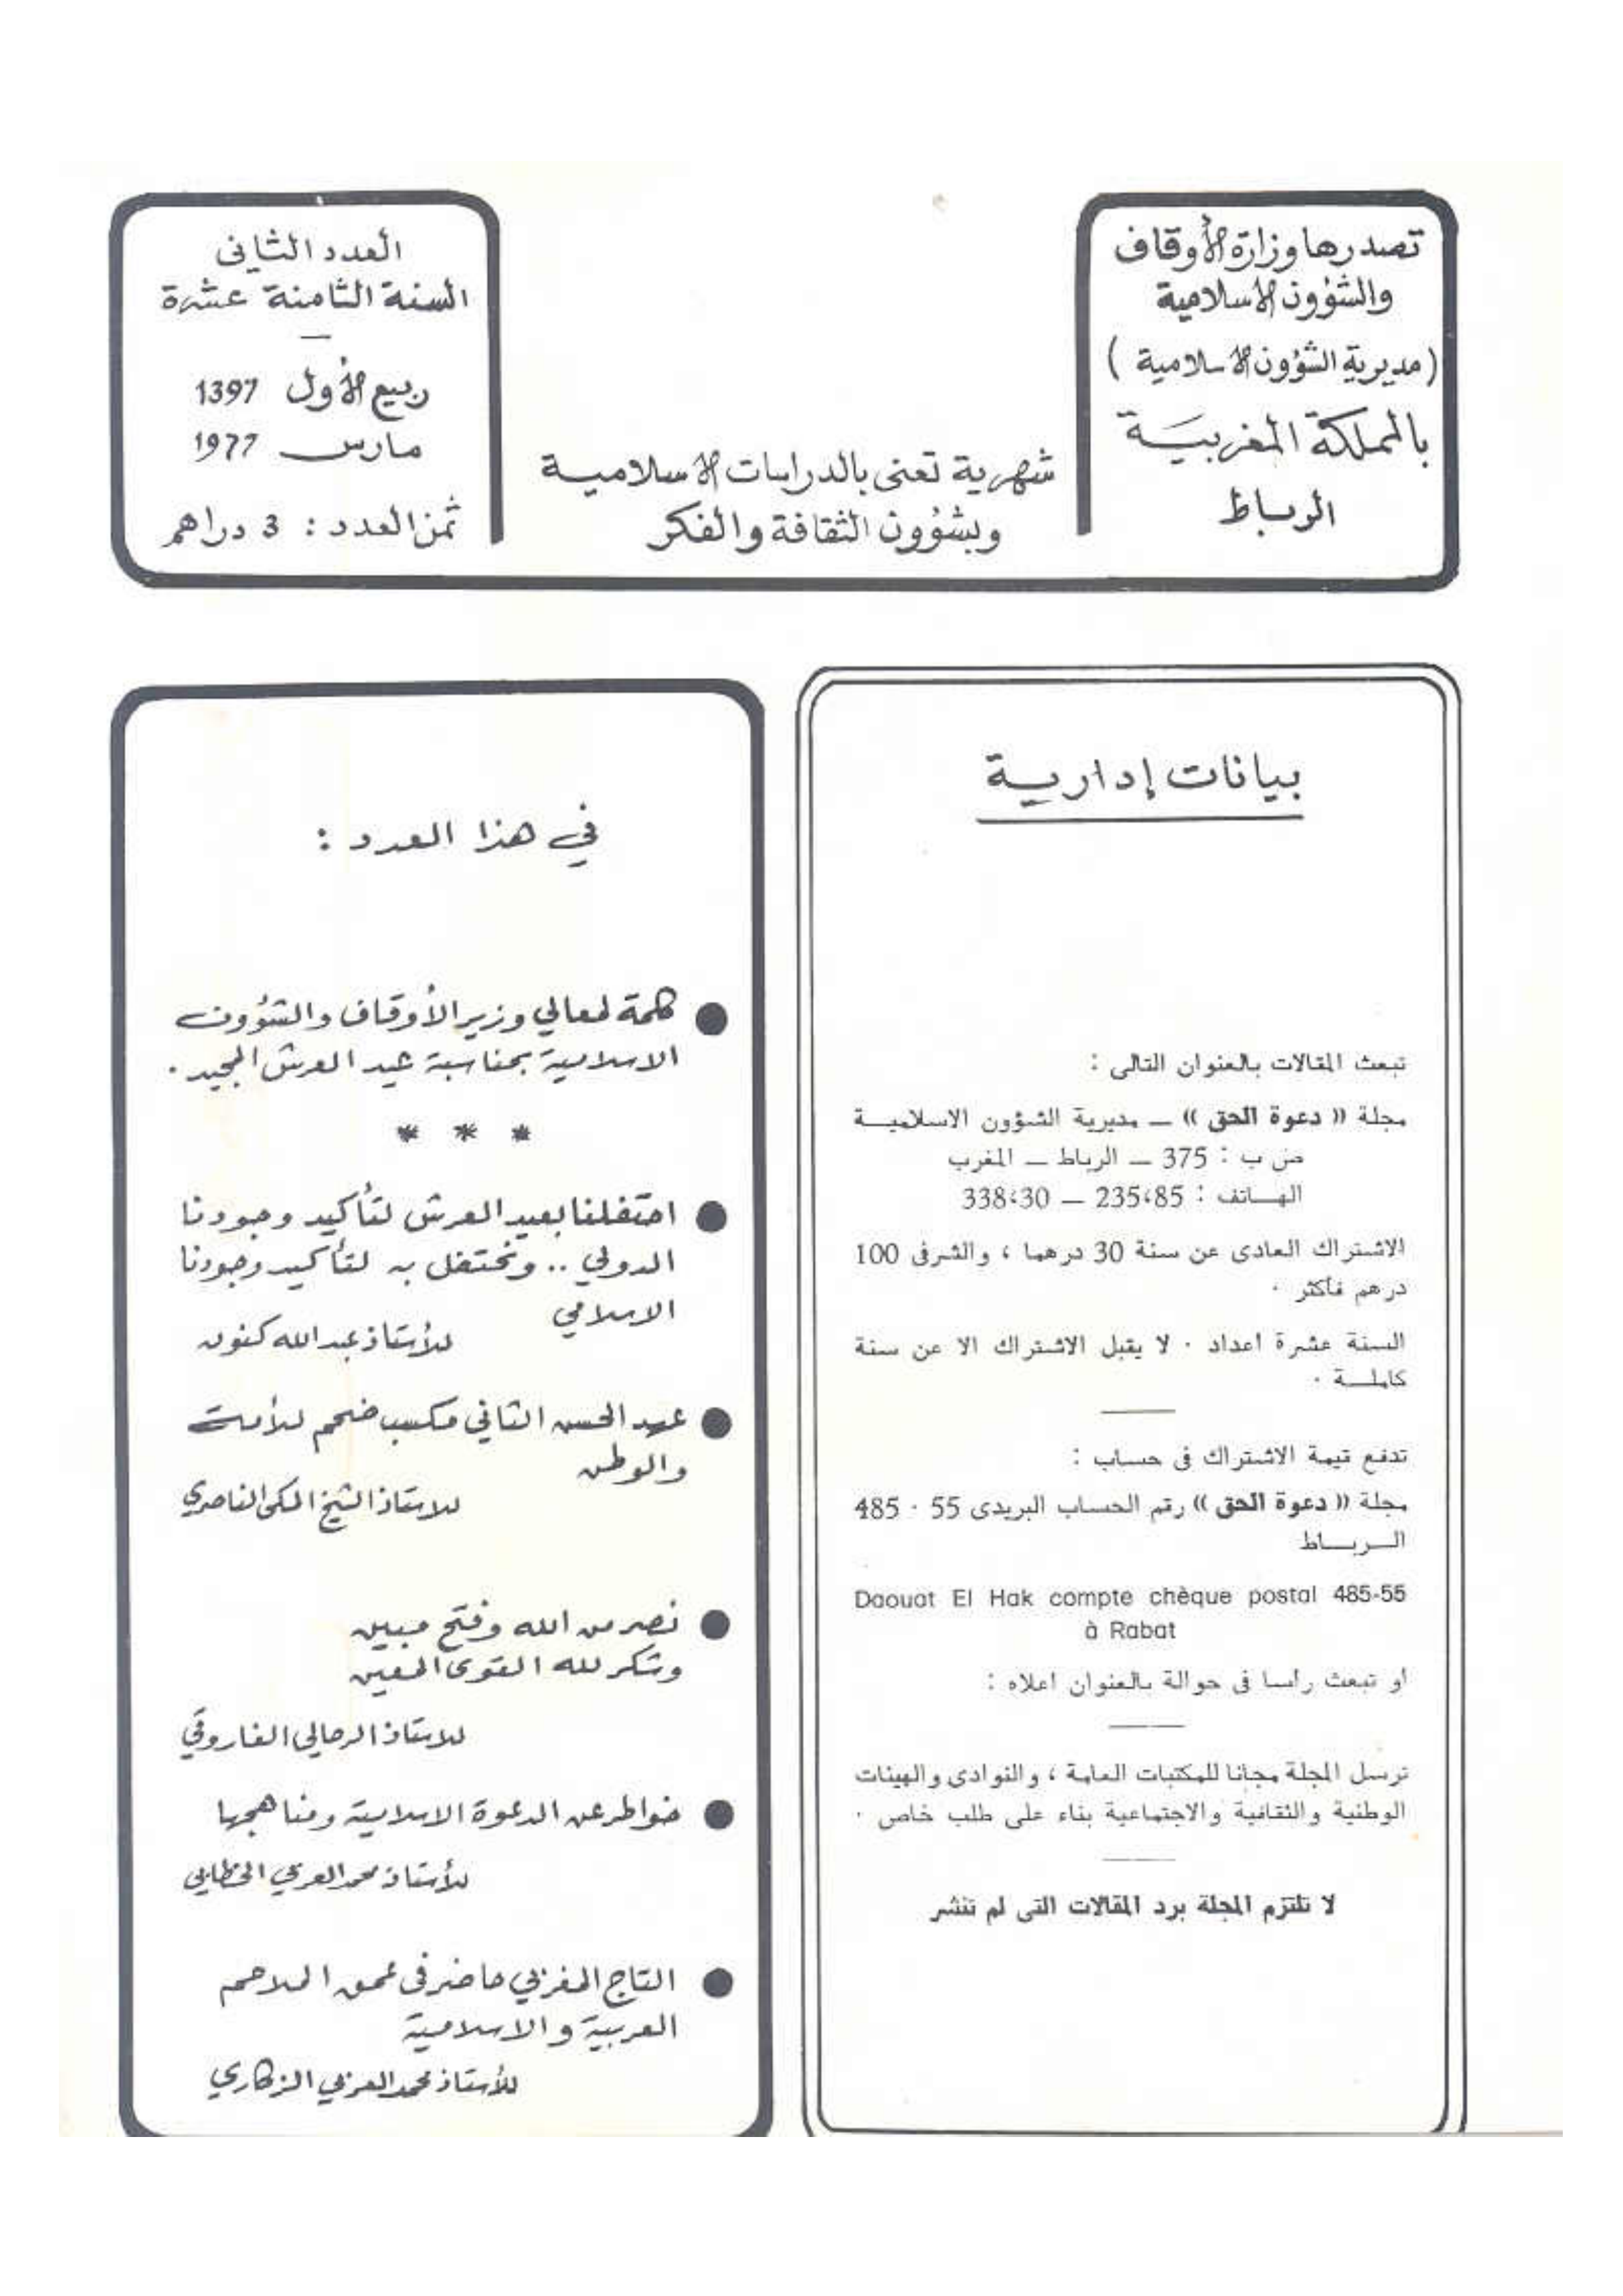 تصدرها وزارة الأوقاف
والشؤون الاسلامية
(مديرية الشؤون الاسلامية)
بالمملكة المغربية
الرباط
شهرية تعنى بالدراسات الاسلامية
وبشؤون الثقافة والفكر
العدد الثانى
السنة الثامنة عشرة
—
ربيع الأول 1397
مارس 1977
ثمن العدد : 3 دراهم
بيانات إدارية
تبعث المقالات بالعنوان التالى :
مجلة (( دعوة الحق )) — مديرية الشؤون الاسلاميـــة
ص ب : 375 — الرباط — المغرب
الهـــاتف : 235،85 — 338،30
الاشتراك العادى عن سنة 30 درهما ، والشرفى 100
درهم فأكثر .
السنة عشرة اعداد . لا يقبل الاشتراك الا عن سنة
كاملـــة .
تدفع قيمة الاشتراك فى حساب :
مجلة (( دعوة الحق )) رقم الحساب البريدى 55 - 485
الـــربـــاط
Daouat El Hak compte chèque postal 485-55
à Rabat
او تبعث راسا فى حوالة بالعنوان اعلاه :
ترسل المجلة مجانا للمكتبات العامة ، والنوادى والهيئات
الوطنية والثقافية والاجتماعية بناء على طلب خاص .
لا تلتزم المجلة برد المقالات التى لم تنشر
في هذا العدد :
● كلمة لمعالي وزير الأوقاف والشؤون
الاسلامية بمناسبة عيد العرش المجيد .
* * *
● احتفلنا بعيد العرش لتأكيد وجودنا
الدولي .. ونحتفل به لتأكيد وجودنا
الاسلامي
للأستاذ عبد الله كنون
● عهد الحسن الثاني مكسب ضخم للأمة
والوطن
للاستاذ الشيخ المكى الناصري
● نصر من الله وفتح مبين
وشكر لله القوى المعين
للاستاذ الرحالي الفاروقي
● خواطر عن الدعوة الاسلامية ومناهجها
للأستاذ محمد العربي الخطابي
● التاج المغربي حاضر فى عمق الملاحم
العربية والاسلامية
للأستاذ محمد العربي الزكاري